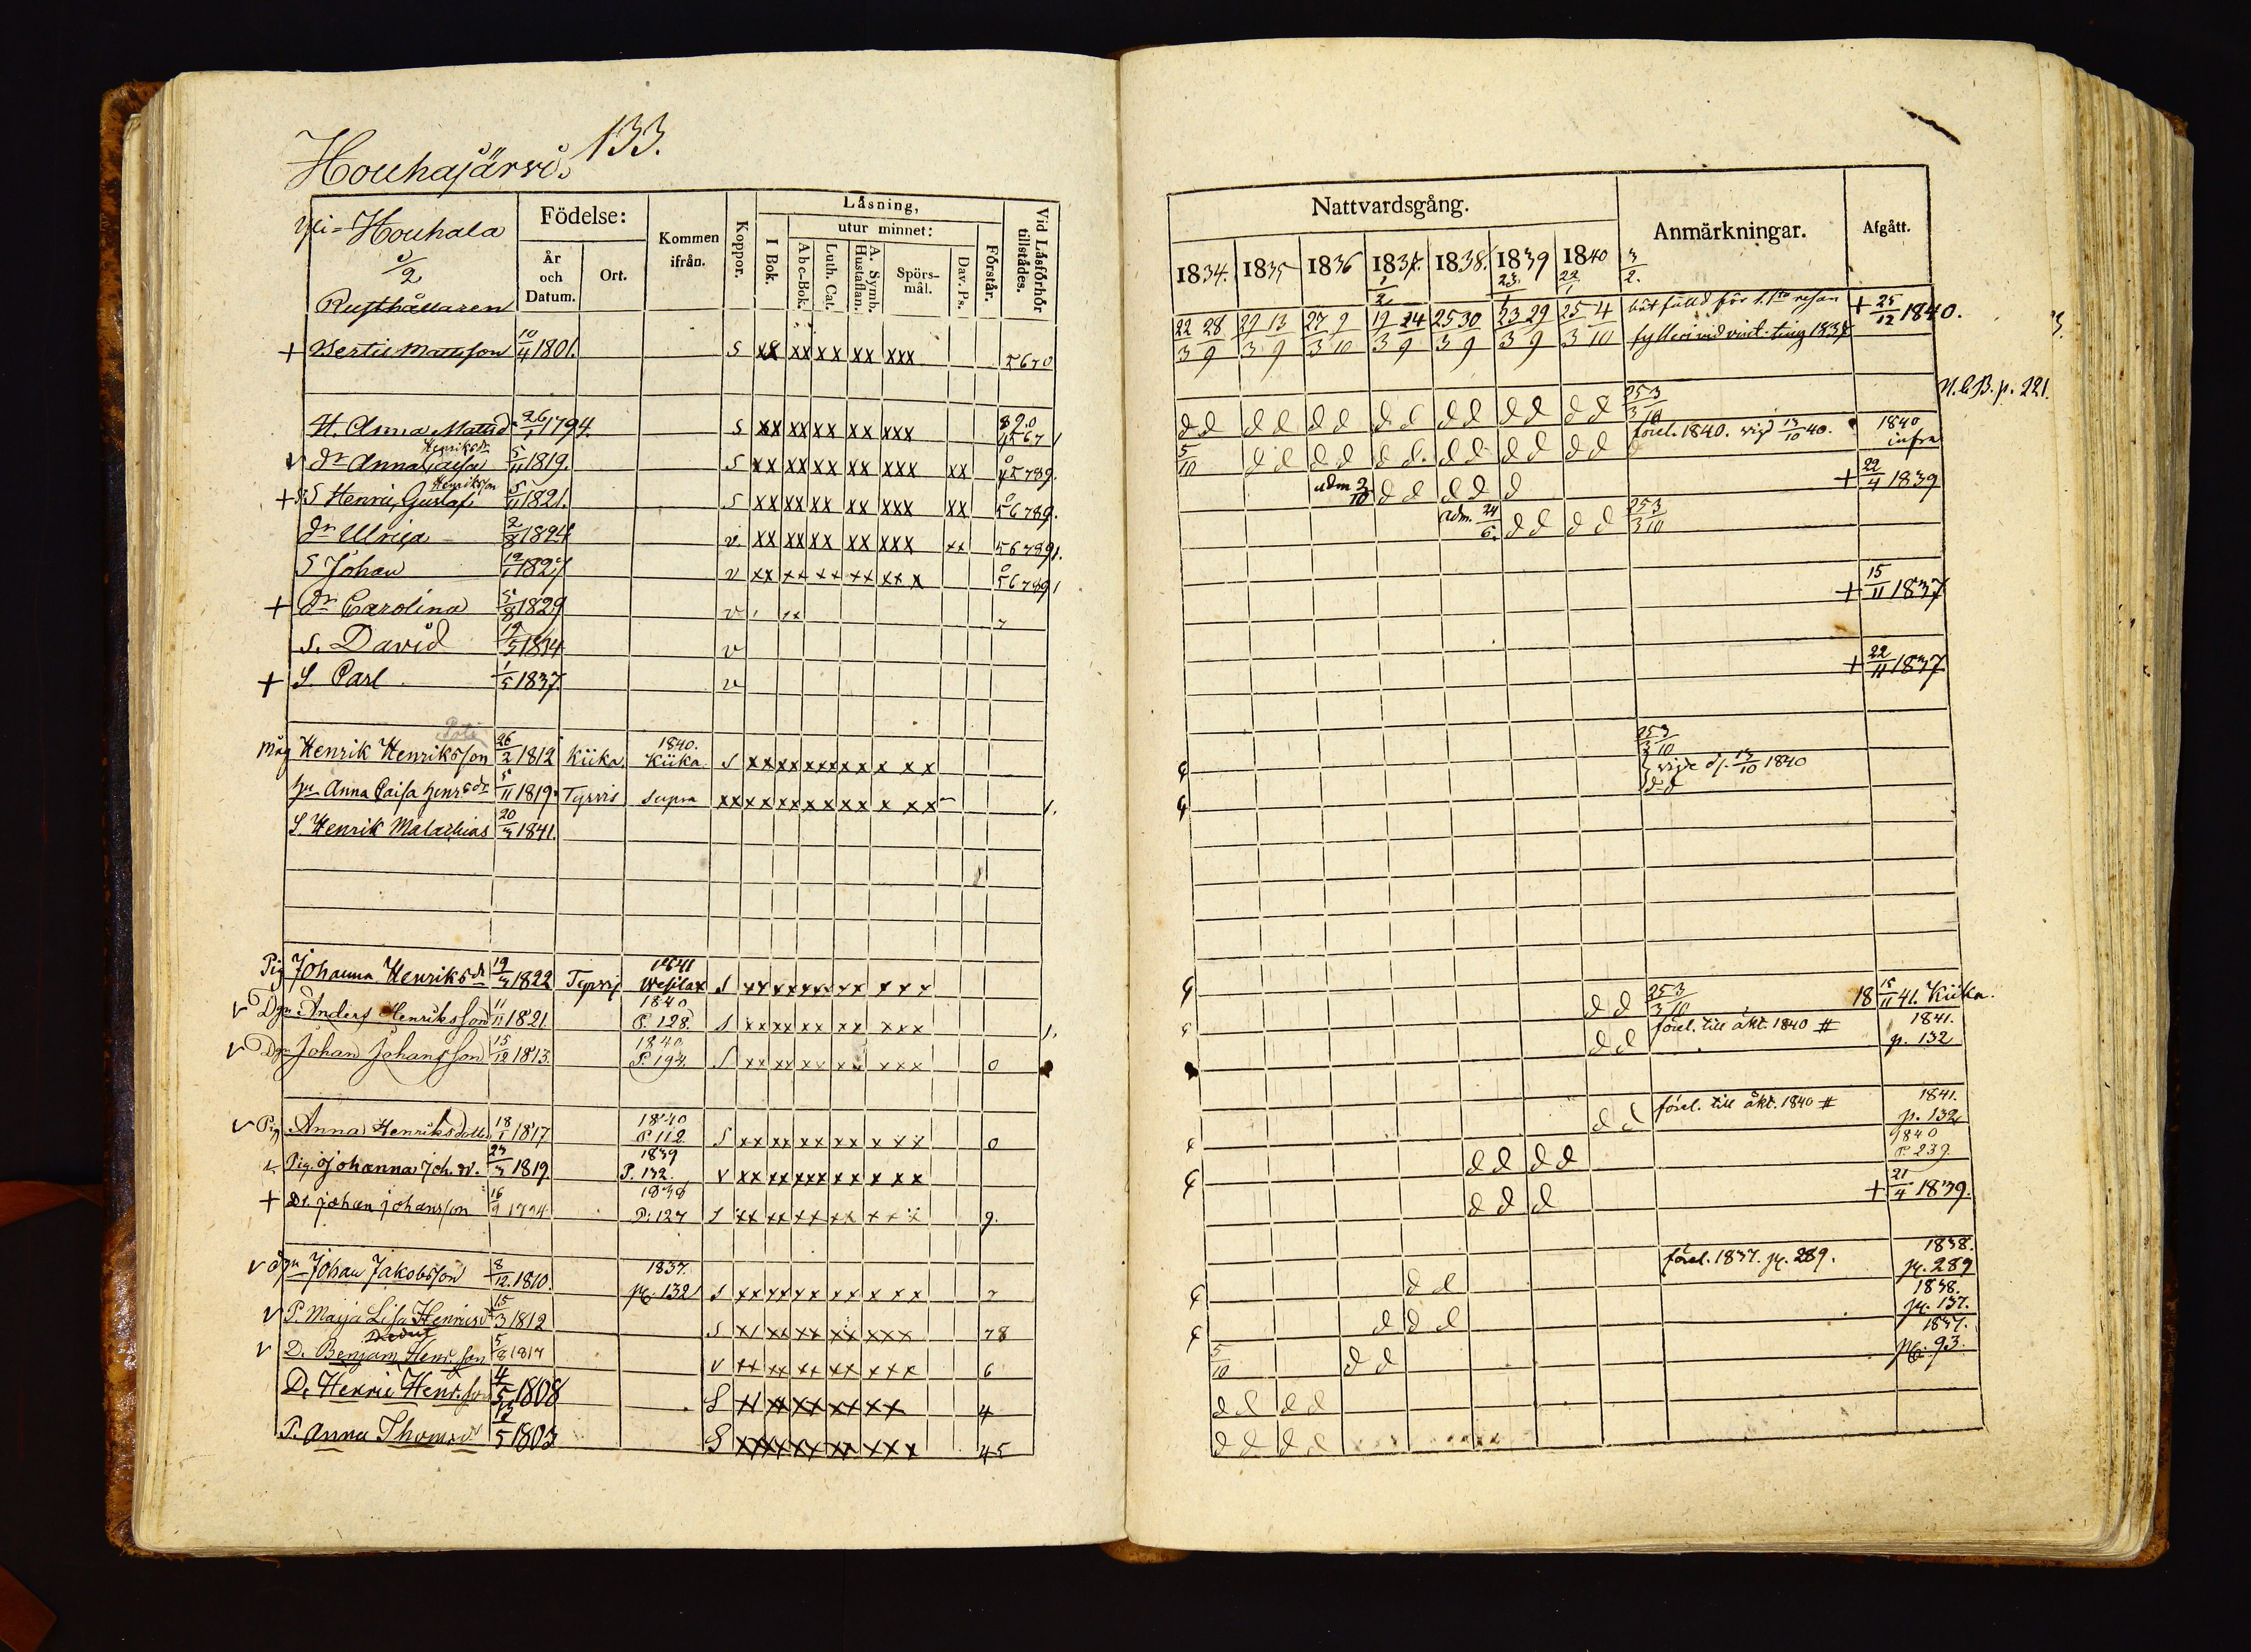 133.
Houhajärvi.
Yli-Houhala
1/2
Rusthållaren
Födelse:
År och Datum.
Ort.
Kommen ifrån.
Koppor.
Låsning,
I Bok.
utur minnet:
Abc-Bok.
Luth. Cat.
A. Symb. Hustaflan.
Spörsmål.
Dav. Ps.
Förstår.
Vid Låsförhör tillstådes.
+ Bertil Mattsson 10/4 1801. S xx xx xx xx xxx 5670
H. Anna Mattsd. 26/1 1794. S xx xx xx xx xxx 890 4567 1
v dr Anna Caisa Henriksdr 5/11 1819. S xx xx xx xx xxx xx 0 45789.
+ S Henric Gustaf Henriksson 5/11 1821. S xx xx xx xx xxx xx 0 56789.
dr Ulrica 2/8 1824 v. xx xx xx xx xxx xx 567891.
S Johan 19/1 1827 v xx xx xx xx xx x 0 567891
+ Dr Carolina 5/8 1829 v , xx 7
S. David 19/5 1834 v
+ S. Carl 1/5 1837 v
måg Henrik Henriksson 26/2 1812 Kiika. 1840. Kiika. S xx xx xxx xx x x x
hu Anna Caisa henrsdr 5/11 1819. Tyrvis supra xx xx xx xx xx x xx 1.
S. Henrik Malachias 20/3 1841.
Pig Johanna Henriksdr 19/3 1822 Tyrvis 1841 Wesilax S xx xx xx xx x x x
v Dgn Anders Henriksson 11/11 1821. 1840 P. 128. S xx xx xx xx xxx 1.
v Dgn Johan Johansson 15/12 1813. 1840 P. 194. S xx xx xx xx xxx 0
v Pig Anna Henriksdottr 18/1 1817 1840 P. 112 S xx xx xx xx x xx 0
v. Pig. Johanna Joh. dr. 23/3 1819. 1839 P. 132. v xx xx xxx xx x xx
+ Dr. Johan Johansson 16/9 1794. 1838 P. 127 S xx xx xx xx xxx 9.
v dgn Johan Jakobsson 8/12. 1810. 1837. pg. 132 S xx xx xx xx x xx 7
v P. Maija Lisa Henricsd 15/3 1812 S xx xx xx xx xxx 78
v D. Benjam. Henr.son 5/8 1817 v xx xx xx xx xxx 6
D. Henric Henr.son 4/5 1808 S xx xx xx xx xx 4
P. Anna Thomasd 13/5 1803 S xx xx xx xx xxx 45
Nattvardsgång.
Anmärkningar.
Afgått.
1834. 1835 1836 1837. 1838. 1839 1840
22/3 28/9 22/3 13/9 27/3 9/10 19/3 24/9 25/3 30/9 23/3 29/9 25/3 4/10
böt fälld för 1.sta resan
fylleri vid vint. ting 1838
+ 25/12 1840.
N.C.B. p. 221.
d d d d d d d d d d d d d d 25/3 3/10
5/10 d d d d d d. d d d d d d förel. 1840. vigd 13/10 40. 1840 infra
adm 2/10 d d d d d + 22/4 1839
adm. 24/6. d d d d 25/3 3/10
+ 15/11 1837
+ 22/11 1837
25/3 3/10
vigde d. 13/10 1840
d d
d d 25/3 3/10 18 15/11 41. Kiika.
d d förel. till äkt. 1840 # 1841. p. 132
d d förel. till äkt. 1840 # 1841. p. 132
d d d d 1840 P. 239.
d d d + 21/4 1839.
d d förel. 1837. pg. 289. 1838. pg. 289
d d d 1838. pg. 137.
5/10 d d 1837. pg. 93.
d d d d
d d d d